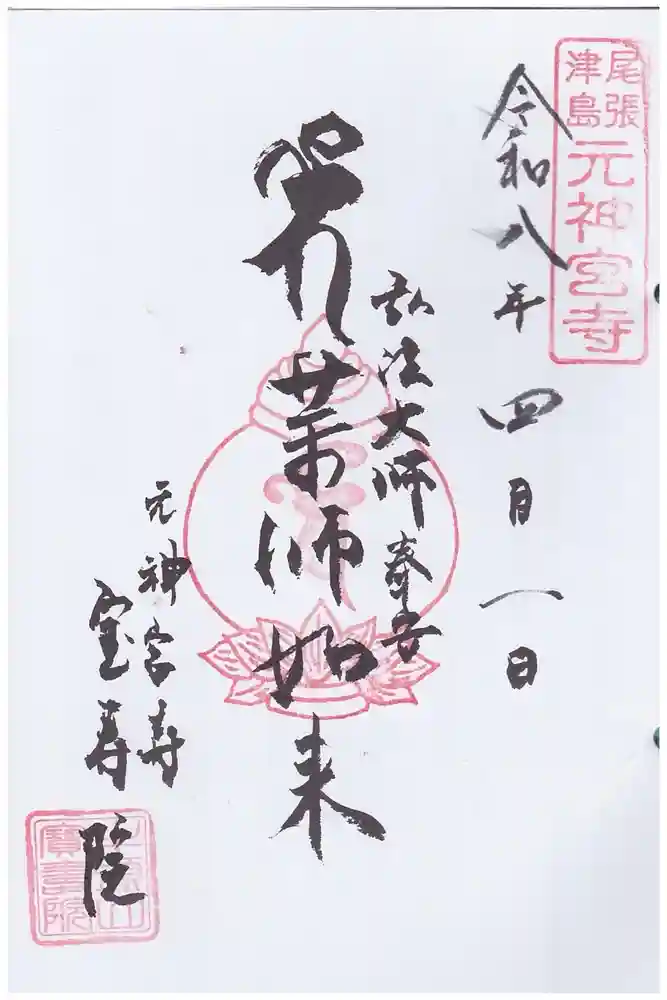 尾張
津島
元神宮寺
令和八年四月一日
弘法大師奉安
薬師如来
元神宮寺
宝寿院
寶壽院